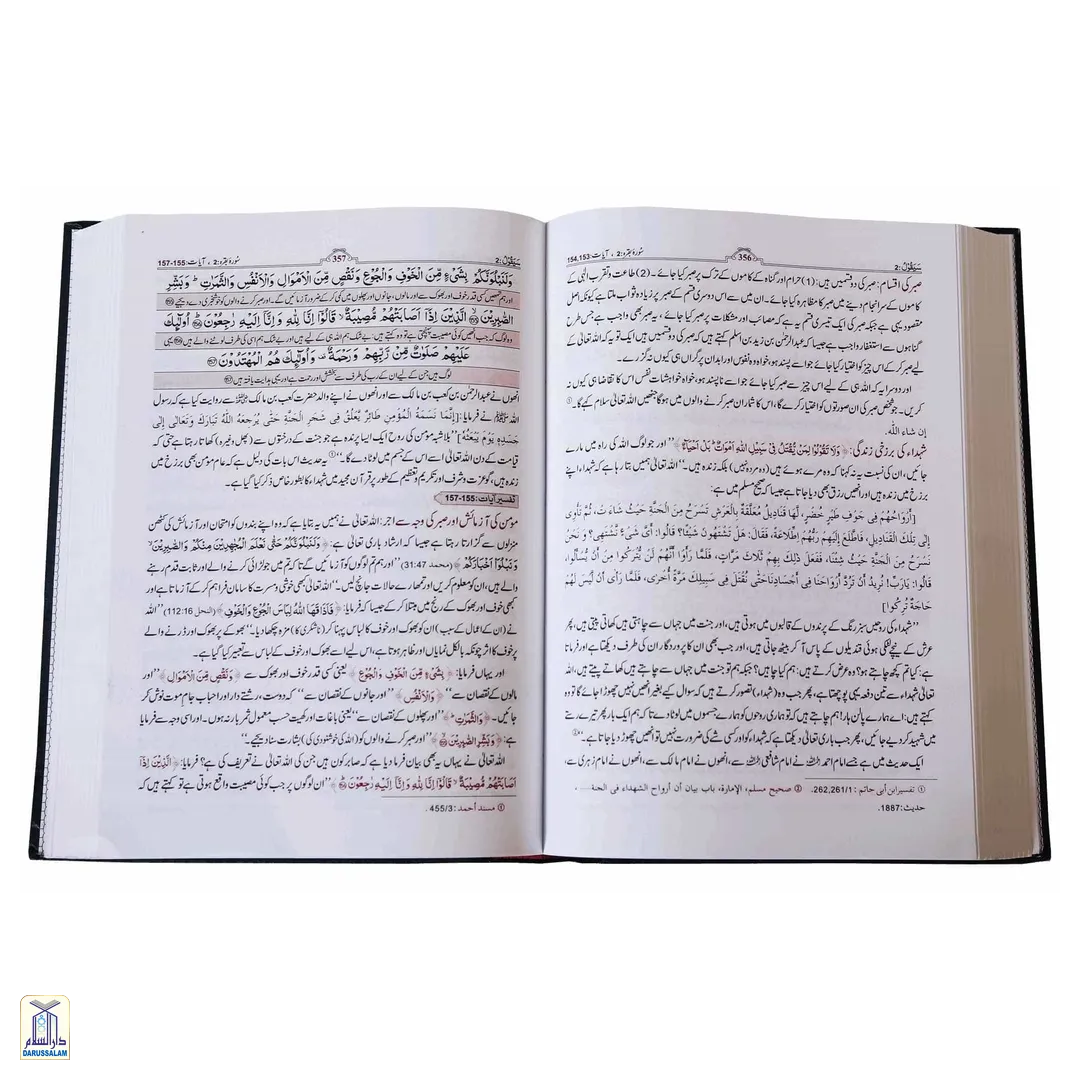 سَيَقُوْلُ:2
356
سُورۂ بقرہ:2 ، آیات:154،153
صبر کی اقسام: صبر کی دو قسمیں ہیں: (1) حرام اور گناہ کے کاموں کے ترک پر صبر کیا جائے۔ (2) طاعت و تقرب الٰہی کے
کاموں کے سرانجام دینے میں صبر کا مظاہرہ کیا جائے۔ ان میں سے اس دوسری قسم کے صبر پر زیادہ ثواب ملتا ہے کیونکہ اصل
مقصود یہی ہے جبکہ صبر کی ایک تیسری قسم یہ ہے کہ مصائب اور مشکلات پر صبر کیا جائے، یہ صبر بھی واجب ہے جس طرح
گناہوں سے استغفار واجب ہے جیسا کہ عبدالرحمٰن بن زید بن اسلم کہتے ہیں کہ صبر کی دو قسمیں ہیں ایک تو یہ کہ اللہ تعالیٰ کے
لیے صبر کر کے اس چیز کو اختیار کیا جائے جو اسے پسند ہو، خواہ وہ نفوس اور ابدان پر گراں ہی کیوں نہ گزرے۔
اور دوسرا یہ کہ اللہ ہی کے لیے اس چیز سے صبر کیا جائے جو اسے ناپسند ہو، خواہ خواہشات نفس اس کا تقاضا ہی کیوں نہ
کریں۔ جو شخص صبر کی ان صورتوں کو اختیار کرے گا، اس کا شمار ان صبر کرنے والوں میں ہوگا جنھیں اللہ تعالیٰ سلام کہے گا۔①
إن شاء اللہ.
شہداء کی برزخی زندگی: ﴿وَلَا تَقُوْلُوْا لِمَنْ يُّقْتَلُ فِيْ سَبِيْلِ اللّٰهِ اَمْوَاتٌ ؕ بَلْ اَحْيَآءٌ﴾ ’’اور جو لوگ اللہ کی راہ میں مارے
جائیں، ان کی نسبت یہ نہ کہنا کہ وہ مرے ہوئے ہیں (وہ مردہ نہیں) بلکہ زندہ ہیں۔‘‘ اللہ تعالیٰ ہمیں بتا رہا ہے کہ شہداء اپنے
برزخ میں زندہ ہیں اور انھیں رزق بھی دیا جاتا ہے جیسا کہ صحیح مسلم میں ہے:
[أَرْوَاحُهُمْ فِي جَوْفِ طَيْرٍ خُضْرٍ، لَهَا قَنَادِيلُ مُعَلَّقَةٌ بِالْعَرْشِ تَسْرَحُ مِنَ الْجَنَّةِ حَيْثُ شَاءَتْ، ثُمَّ تَأْوِي
إِلَى تِلْكَ الْقَنَادِيلِ، فَاطَّلَعَ إِلَيْهِمْ رَبُّهُمْ اِطِّلَاعَةً، فَقَالَ: هَلْ تَشْتَهُونَ شَيْئًا؟ قَالُوا: أَيَّ شَيْءٍ نَشْتَهِي؟ وَ نَحْنُ
نَسْرَحُ مِنَ الْجَنَّةِ حَيْثُ شِئْنَا، فَفَعَلَ ذَلِكَ بِهِمْ ثَلَاثَ مَرَّاتٍ، فَلَمَّا رَأَوْا أَنَّهُمْ لَنْ يُتْرَكُوا مِنْ أَنْ يُسْأَلُوا،
قَالُوا: يَارَبِّ! نُرِيدُ أَنْ تَرُدَّ أَرْوَاحَنَا فِي أَجْسَادِنَا حَتَّى نُقْتَلَ فِي سَبِيلِكَ مَرَّةً أُخْرَى، فَلَمَّا رَأَى أَنْ لَيْسَ لَهُمْ
حَاجَةٌ تُرِكُوا]
’’شہداء کی روحیں سبز رنگ کے پرندوں کے قالبوں میں ہوتی ہیں، اور جنت میں جہاں سے چاہتی ہیں کھاتی پیتی ہیں، پھر
عرش کے نیچے لٹکی ہوئی قندیلوں کے پاس آ کر بیٹھ جاتی ہیں، اور جب بھی ان کا پروردگار ان کی طرف دیکھتا ہے اور فرماتا
ہے: کیا تم کچھ چاہتے ہو؟ وہ عرض کرتے ہیں: ہم کیا چاہیں؟ جبکہ ہم تو جنت میں جہاں سے چاہتے ہیں کھاتے پیتے ہیں، اللہ
تعالیٰ شہداء سے تین دفعہ یہی پوچھتا ہے، پھر جب وہ (شہداء) تصور کرتے ہیں کہ سوال کیے بغیر انھیں نہیں چھوڑا جائے گا تو وہ
کہتے ہیں: اے ہمارے پالن ہار! ہم چاہتے ہیں کہ تو ہماری روحوں کو ہمارے جسموں میں لوٹا دے تا کہ ہم ایک بار پھر تیرے رستے
میں شہید کر دیے جائیں، پھر جب باری تعالیٰ دیکھتا ہے کہ شہداء کو اور کسی شے کی ضرورت نہیں تو انھیں چھوڑ دیا جاتا ہے۔‘‘②
ایک حدیث میں ہے جسے امام احمد رحمہ اللہ نے امام شافعی رحمہ اللہ سے، انھوں نے امام مالک سے، انھوں نے امام زہری سے،
① تفسیر ابن أبی حاتم: 262,261/1. ② صحیح مسلم، الإمارة، باب بیان أن أرواح الشهداء في الجنة......،
حدیث:1887.
سَيَقُوْلُ:2
357
سُورۂ بقرہ:2 ، آیات:155-157
وَلَنَبْلُوَنَّكُمْ بِشَيْءٍ مِّنَ الْخَوْفِ وَالْجُوْعِ وَنَقْصٍ مِّنَ الْاَمْوَالِ وَالْاَنْفُسِ وَالثَّمَرٰتِ ؕ وَبَشِّرِ
اور ہم تمھیں کسی قدر خوف اور بھوک سے اور مالوں، جانوں اور پھلوں میں کمی کر کے ضرور آزمائیں گے۔ اور صبر کرنے والوں کو خوشخبری دے دیجیے ⑮⑤
الصّٰبِرِيْنَ ⑮⑤ الَّذِيْنَ اِذَآ اَصَابَتْهُمْ مُّصِيْبَةٌ ۙ قَالُوْٓا اِنَّا لِلّٰهِ وَاِنَّآ اِلَيْهِ رٰجِعُوْنَ ⑮⑥ اُولٰٓئِكَ
وہ لوگ کہ جب انھیں کوئی مصیبت آ پہنچتی ہے تو وہ کہتے ہیں: بے شک ہم اللہ ہی کے ہیں اور بے شک ہم اسی کی طرف لوٹنے والے ہیں ⑮⑥ یہی
عَلَيْهِمْ صَلَوٰتٌ مِّنْ رَّبِّهِمْ وَرَحْمَةٌ ۫ وَاُولٰٓئِكَ هُمُ الْمُهْتَدُوْنَ ⑮⑦
لوگ ہیں جن کے لیے ان کے رب کی طرف سے بخشش اور رحمت ہے اور یہی ہدایت یافتہ ہیں ⑮⑦
انھوں نے عبدالرحمٰن بن کعب بن مالک سے اور انھوں نے اپنے والد حضرت کعب بن مالک سے روایت کیا ہے کہ رسول
اللہ ﷺ نے فرمایا: [إِنَّمَا نَسَمَةُ الْمُؤْمِنِ طَائِرٌ يَعْلُقُ فِي شَجَرِ الْجَنَّةِ حَتَّى يُرْجِعَهُ اللّٰهُ تَبَارَكَ وَتَعَالَى إِلَى
جَسَدِهِ يَوْمَ يَبْعَثُهُ] ’’بلاشبہ مؤمن کی روح ایک ایسا پرندہ ہے جو جنت کے درختوں سے (پھل وغیرہ) کھاتا رہتا ہے حتی کہ
قیامت کے دن اللہ تعالیٰ اسے اس کے جسم میں لوٹا دے گا۔‘‘① یہ حدیث اس بات کی دلیل ہے کہ عام مؤمن بھی برزخ میں
زندہ ہیں، گو عزت و شرف اور تکریم و تعظیم کے طور پر قرآن مجید میں شہداء کا بطور خاص ذکر کیا گیا ہے۔
تفسیر آیات:155-157
مؤمن کی آزمائش اور صبر کی وجہ سے اجر: اللہ تعالیٰ نے ہمیں یہ بتایا ہے کہ وہ اپنے بندوں کو امتحان اور آزمائش کی کٹھن
منزلوں سے گزارتا رہتا ہے جیسا کہ ارشاد باری تعالیٰ ہے: ﴿وَلَنَبْلُوَنَّكُمْ حَتّٰى نَعْلَمَ الْمُجٰهِدِيْنَ مِنْكُمْ وَالصّٰبِرِيْنَ ۙ
وَنَبْلُوَا۟ اَخْبَارَكُمْ﴾ (محمد 31:47) ’’اور ہم تم لوگوں کو آزمائیں گے تا کہ تم میں جو لڑائی کرنے والے اور ثابت قدم رہنے
والے ہیں، ان کو معلوم کریں اور تمھارے حالات جانچ لیں۔‘‘ اللہ تعالیٰ بھی خوشی و مسرت کا سامان فراہم کر کے آزماتا ہے اور
کبھی خوف اور بھوک کے رنج میں مبتلا کر کے جیسا کہ فرمایا: ﴿فَاَذَاقَهَا اللّٰهُ لِبَاسَ الْجُوْعِ وَالْخَوْفِ﴾ (النحل 112:16) ’’اللہ
نے (ان کے اعمال کے سبب) ان کو بھوک اور خوف کا لباس پہنا کر (ناشکری کا) مزہ چکھا دیا۔‘‘ بھوکے پر بھوک اور ڈرنے والے
پر خوف کا اثر چونکہ بالکل نمایاں اور ظاہر ہوتا ہے، اس لیے اسے بھوک اور خوف کے لباس سے تعبیر کیا گیا ہے۔
اور یہاں فرمایا: ﴿بِشَيْءٍ مِّنَ الْخَوْفِ وَالْجُوْعِ﴾ یعنی کسی قدر خوف اور بھوک سے۔ ﴿وَنَقْصٍ مِّنَ الْاَمْوَالِ﴾ ’’اور
مالوں کے نقصان سے‘‘ ﴿وَالْاَنْفُسِ﴾ ’’اور جانوں کے نقصان سے‘‘ کہ دوست، رشتے دار اور احباب جامِ موت نوش کر
جائیں۔ ﴿وَالثَّمَرٰتِ ؕ﴾ ’’اور پھلوں کے نقصان سے‘‘ یعنی باغات اور کھیت حسب معمول ثمر بار نہ ہوں۔ اور اسی وجہ سے فرمایا
ہے: ﴿وَبَشِّرِ الصّٰبِرِيْنَ﴾ ’’اور صبر کرنے والوں کو (اللہ کی خوشنودی کی) بشارت سنا دیجیے۔‘‘
اللہ تعالیٰ نے یہاں یہ بھی بیان فرما دیا ہے کہ صابر کون ہیں جن کی اللہ تعالیٰ نے تعریف کی ہے؟ فرمایا: ﴿الَّذِيْنَ اِذَآ
اَصَابَتْهُمْ مُّصِيْبَةٌ ۙ قَالُوْٓا اِنَّا لِلّٰهِ وَاِنَّآ اِلَيْهِ رٰجِعُوْنَ﴾ ’’ان لوگوں پر جب کوئی مصیبت واقع ہوتی ہے تو کہتے ہیں کہ
① مسند أحمد: 455/3.
دارالسلام
DARUSSALAM